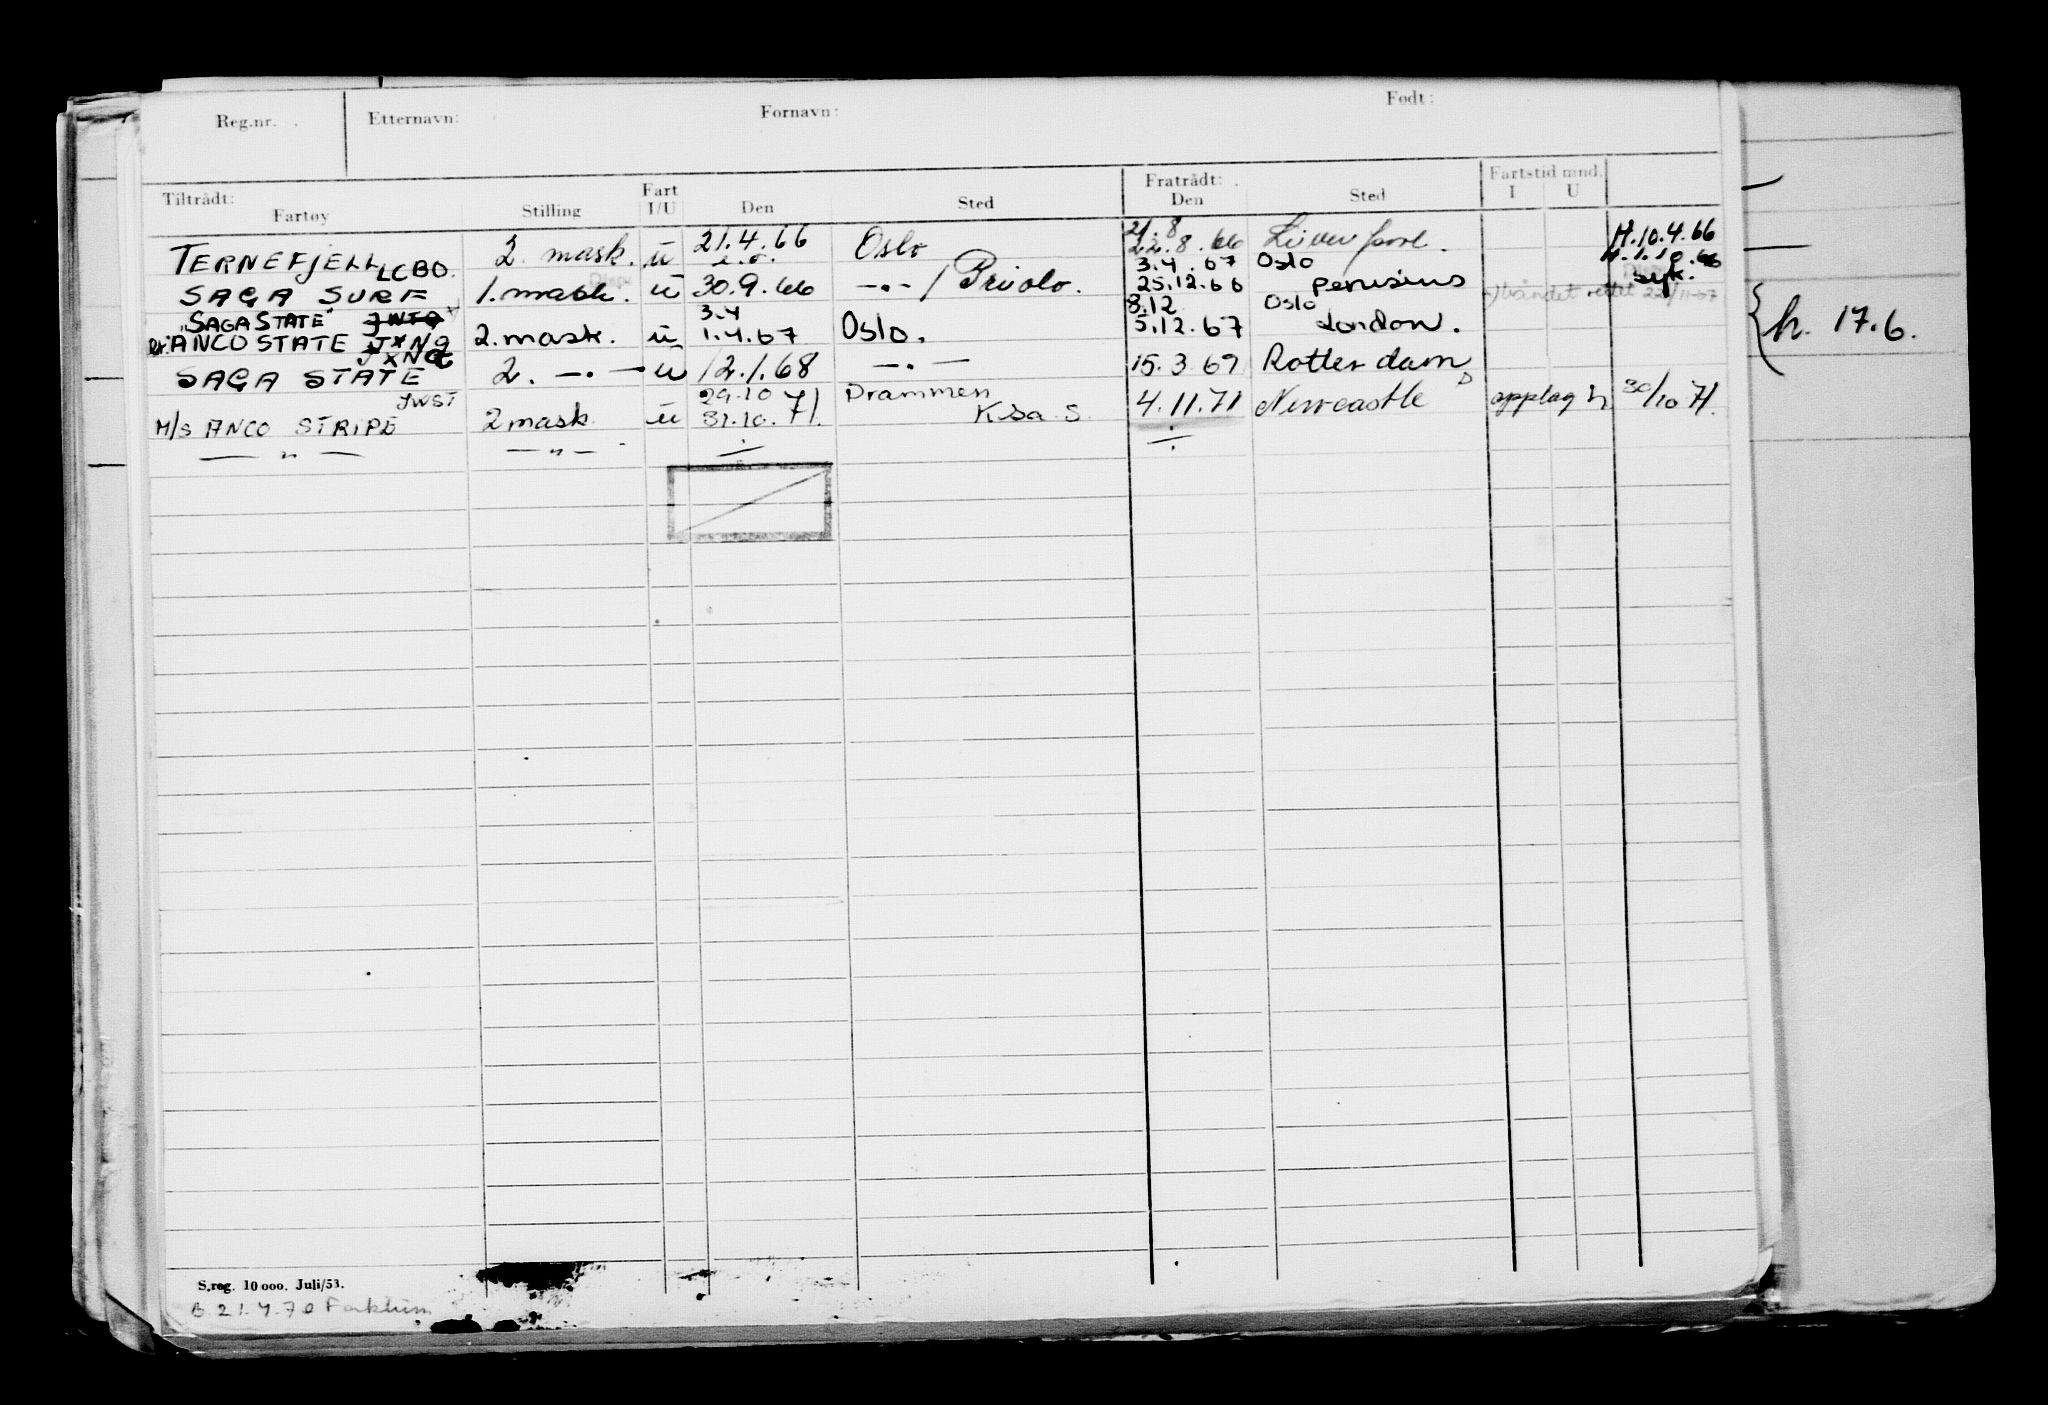 Reg.nr. Etternavn: Fornavn: Født:
Tiltrådt: Fratrådt: Fartstid mnd.
Fartøy Stilling Fart I/U Den Sted Den Sted I U
TERNEFJELL LCBO. 2. mask. u 21.4.66 Oslo 21.8 22.8.66 Liverpool. H.10.4.66
SAGA SURF 1. mask. u 30.9.66 —.— / Priolo. 3.4.67 25.12.66 Oslo H.1.10.66 syk.
"SAGA STATE" 3.4 8.12 Oslo
ANCO STATE JXNQ 2. mask. u 1.4.67 Oslo. 5.12.67 London.
SAGA STATE JXNQ 2. —.— u 12.1.68 —.— 15.3.69 Rotterdam
M/S ANCO STRIPE JWST 2 mask. u 29.10 31.10.71. Drammen 4.11.71 Newcastle 30/10 71.
— " — — " —
h. 17.6.
S.reg. 10 000. Juli/53.